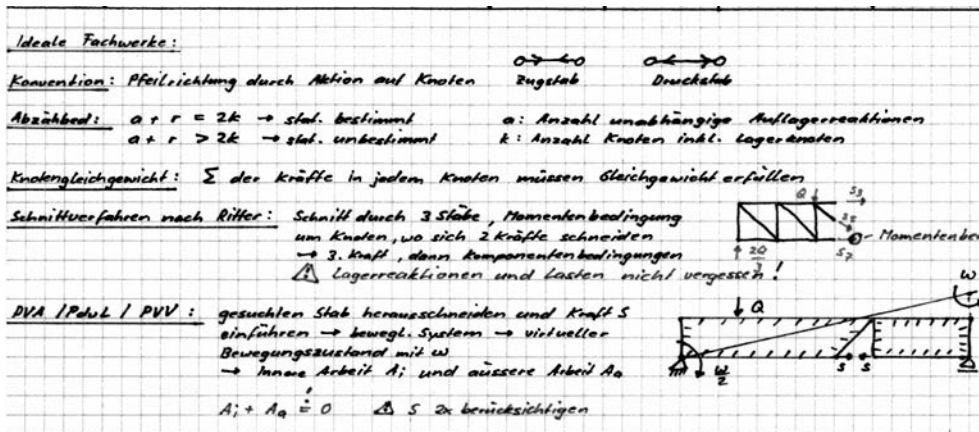 Ideale Fachwerke:
Konvention: Pfeilrichtung durch Aktion auf Knoten
Zugstab Druckstab
Abzählbed: a + r = 2k → stat. bestimmt a: Anzahl unabhängige Auflagerreaktionen
a + r > 2k → stat. unbestimmt k: Anzahl Knoten inkl. Lagerknoten
Knotengleichgewicht: Σ der Kräfte in jedem Knoten müssen Gleichgewicht erfüllen
Schnittverfahren nach Ritter: Schnitt durch 3 Stäbe, Momentenbedingung
um Knoten, wo sich 2 Kräfte schneiden
→ 3. Kraft, dann Komponentenbedingungen
⚠ Lagerreaktionen und Lasten nicht vergessen!
Q
S7
Momentenbed
2Q/3
PVA / PdvL / PVV: gesuchten Stab herausschneiden und Kraft S
einführen → bewegl. System → virtueller
Bewegungszustand mit ω
→ Innere Arbeit Ai und äussere Arbeit Aa
Ai + Aa = 0 ⚠ S 2x berücksichtigen
!
Q
ω
ω/2
S S